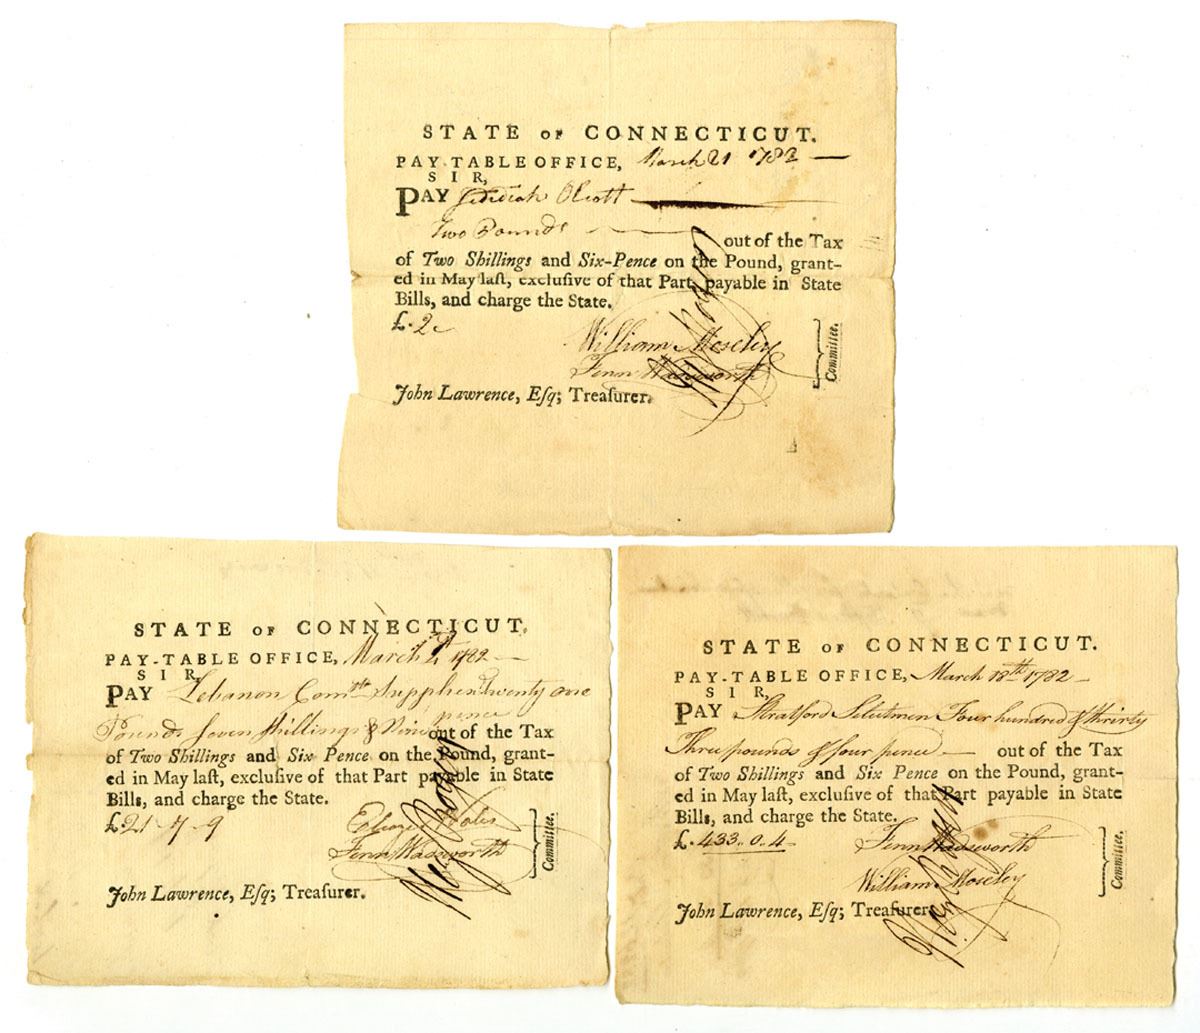 STATE OF CONNECTICUT.
PAY-TABLE OFFICE, March 21 1782
SIR,
PAY Jedidiah Olcott
Two Pounds out of the Tax
of Two Shillings and Six-Pence on the Pound, grant-
ed in May laſt, excluſive of that Part payable in State
Bills, and charge the State.
£.2
William Moseley
Fenn Wadsworth
Committee.
John Lawrence, Eſq; Treaſurer.
STATE OF CONNECTICUT.
PAY-TABLE OFFICE, March 1782
SIR,
PAY Lebanon Comtt Supplies twenty one
Pounds Seven Shillings & Nine pence out of the Tax
of Two Shillings and Six Pence on the Pound, grant-
ed in May laſt, excluſive of that Part payable in State
Bills, and charge the State.
£.21-7-9
Eleazer Wales
Fenn Wadsworth
Committee.
John Lawrence, Eſq; Treaſurer.
STATE OF CONNECTICUT.
PAY-TABLE OFFICE, March 18th 1782
SIR,
PAY Stratford Selectmen Four hundred & thrirty
Three pounds & four pence out of the Tax
of Two Shillings and Six Pence on the Pound, grant-
ed in May laſt, excluſive of that Part payable in State
Bills, and charge the State.
£.433.0.4
Fenn Wadsworth
William Moseley
Committee.
John Lawrence, Eſq; Treaſurer.